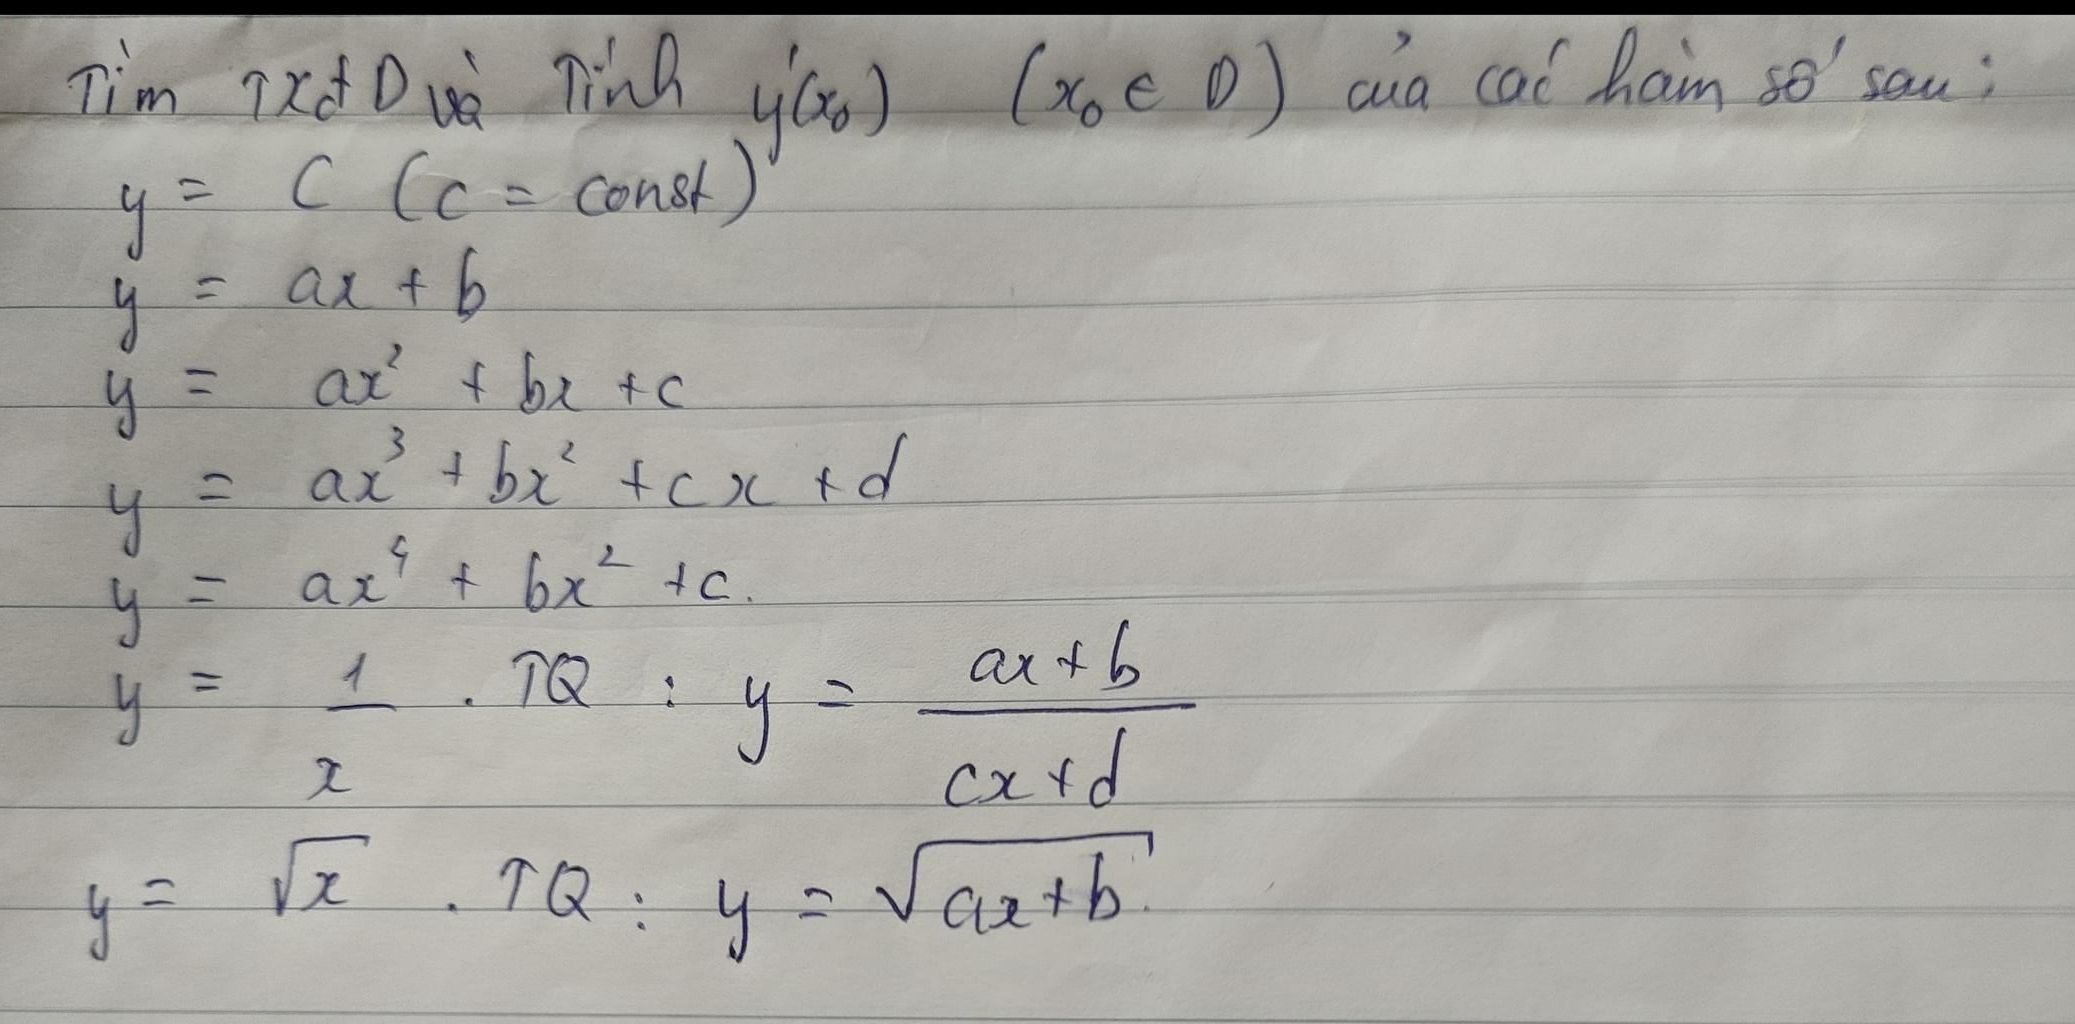 Tìm TXĐ D và Tính y'(x₀) (x₀ ∈ D) của các hàm số sau:
y = C (C = const)
y = ax + b
y = ax² + bx + c
y = ax³ + bx² + cx + d
y = ax⁴ + bx² + c.
y = 1/x . TQ : y = (ax+b)/(cx+d)
y = √x . TQ : y = √(ax+b).